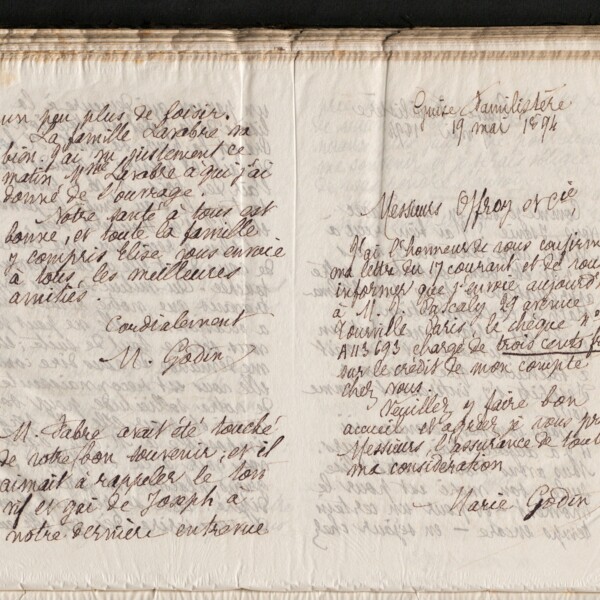 un peu plus de loisir.
La famille Larabre va
bien. J'ai vu justement ce
matin Mme Larabre à qui j'ai
donné de l'ouvrage.
Notre santé à tous est
bonne, et toute la famille
y compris Elise vous envoie
à tous, les meilleures
amitiés.
Cordialement
M. Godin
M. Fabre avait été touché
de votre bon souvenir, et il
aimait à rappeler le bon
et gai de Joseph à
notre dernière entrevue
Guise Familistère
19 mai 1894
Messieurs Offroy et Cie
J'ai l'honneur de vous confirm
ma lettre du 17 courant et de vous
informer que j'envoie aujourd
à M. Pascaly 29 avenue
Tourville Paris, le chèque n°
A113693 chargé de trois cents f
sur le crédit de mon compte
chez vous.
Veuillez y faire bon
accueil et agréer je vous pri
Messieurs, l'assurance de tout
ma considération
Marie Godin